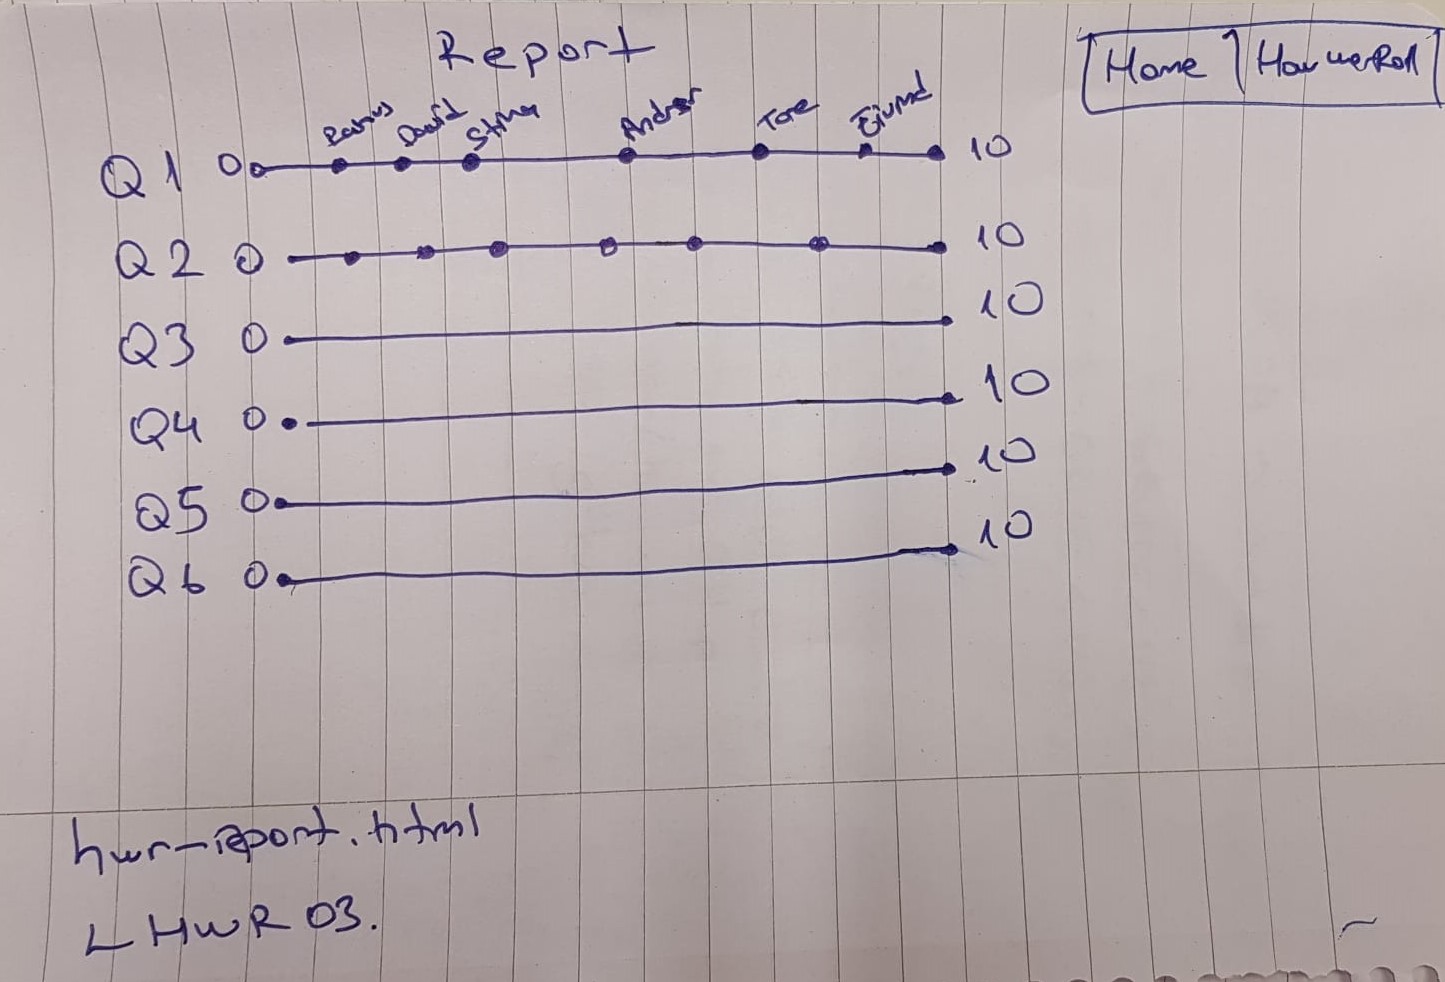 Report
Home How we Roll
David Stina Andror Tore
Q1 0 10
Q2 0 10
Q3 0 10
Q4 0 10
Q5 0 10
Q6 0 10
hwr-report.html
HWR 03.